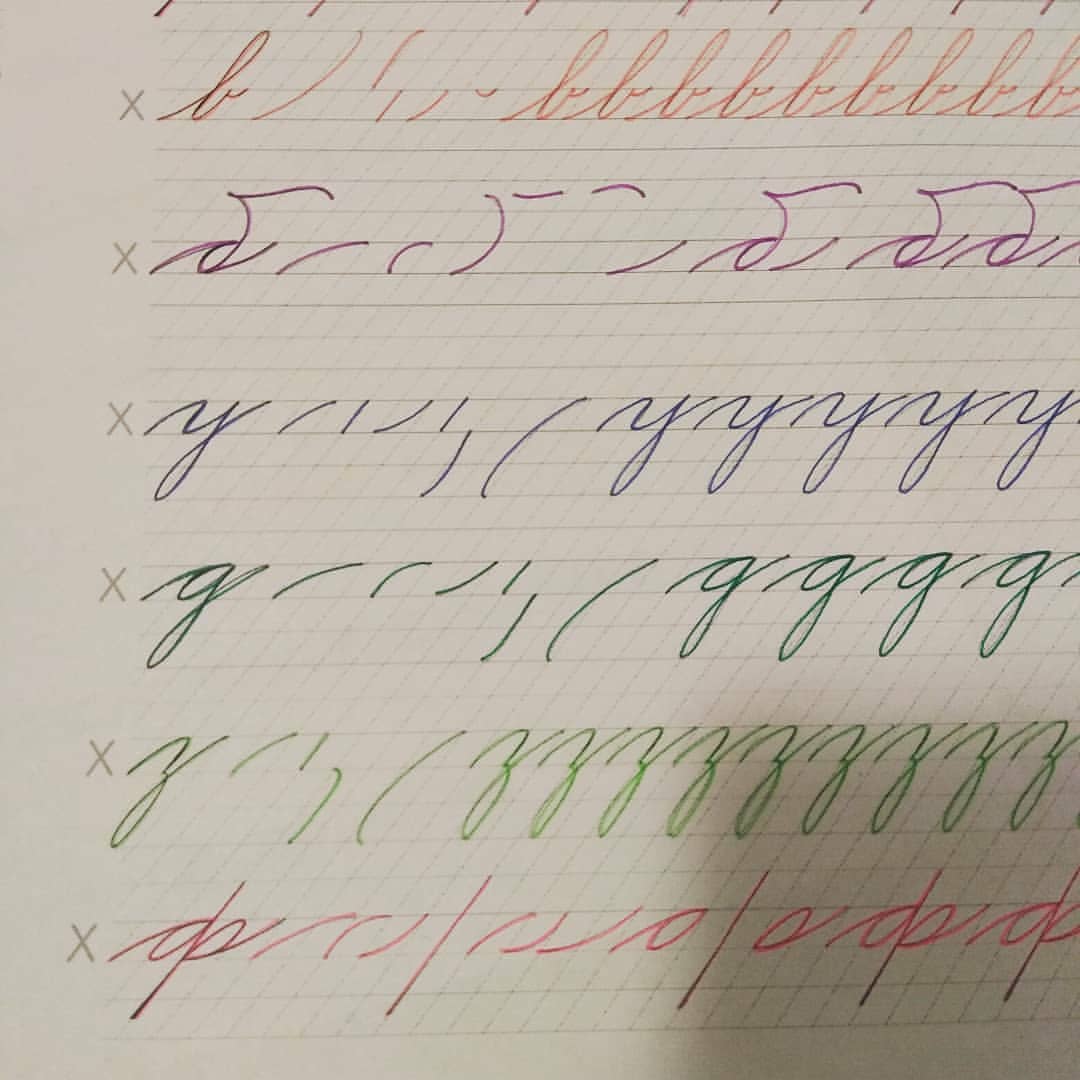 x в ввввввввв
x б б б б
x у у у у у у
x д д д д д
x з ззззззззз
x ф ф ф